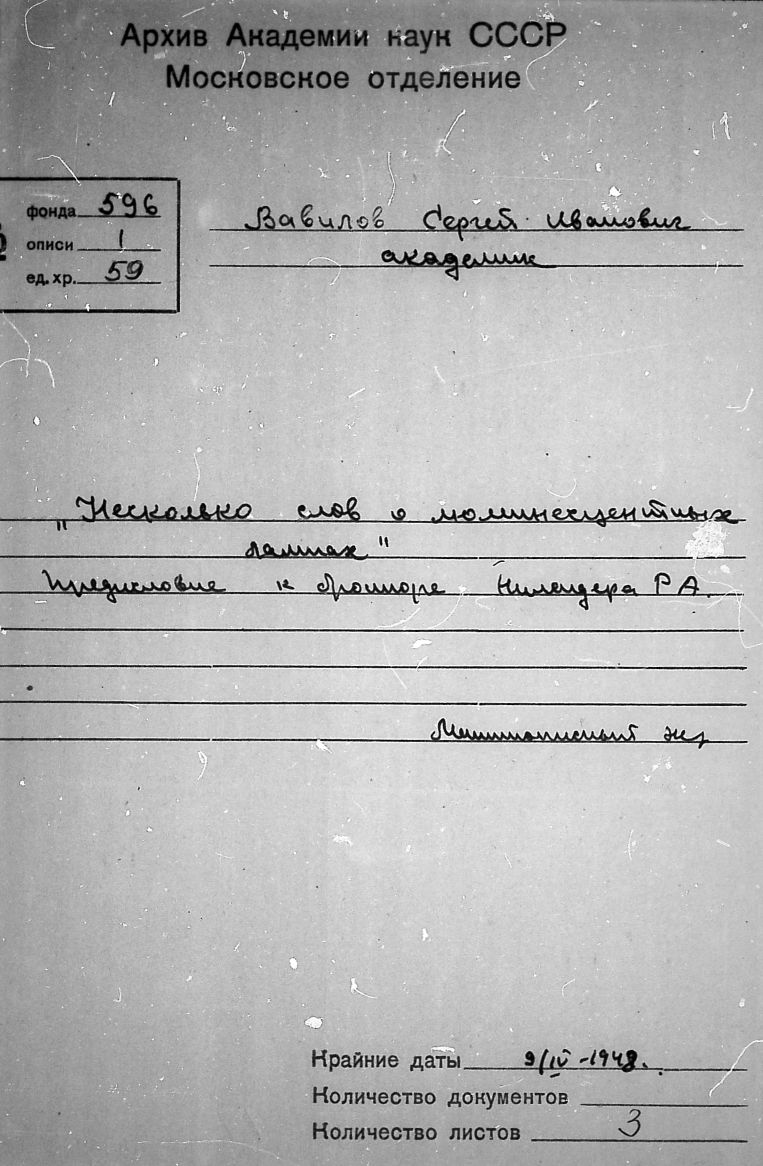 Архив Академии наук СССР
Московское отделение
фонда 596
описи 1
ед. хр. 59
Вавилов Сергей Иванович
академик
„Несколько слов о люминесцентных
лампах"
Предисловие к брошюре Нилендера Р А.
Машинописный экз
Крайние даты 9/IV-1948.
Количество документов
Количество листов 3